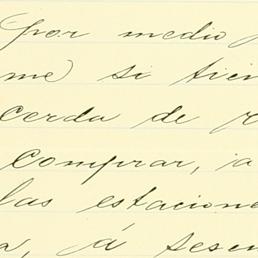 por medio
me si tien
cerda de
comprar, a
las estacione
a, á sesen